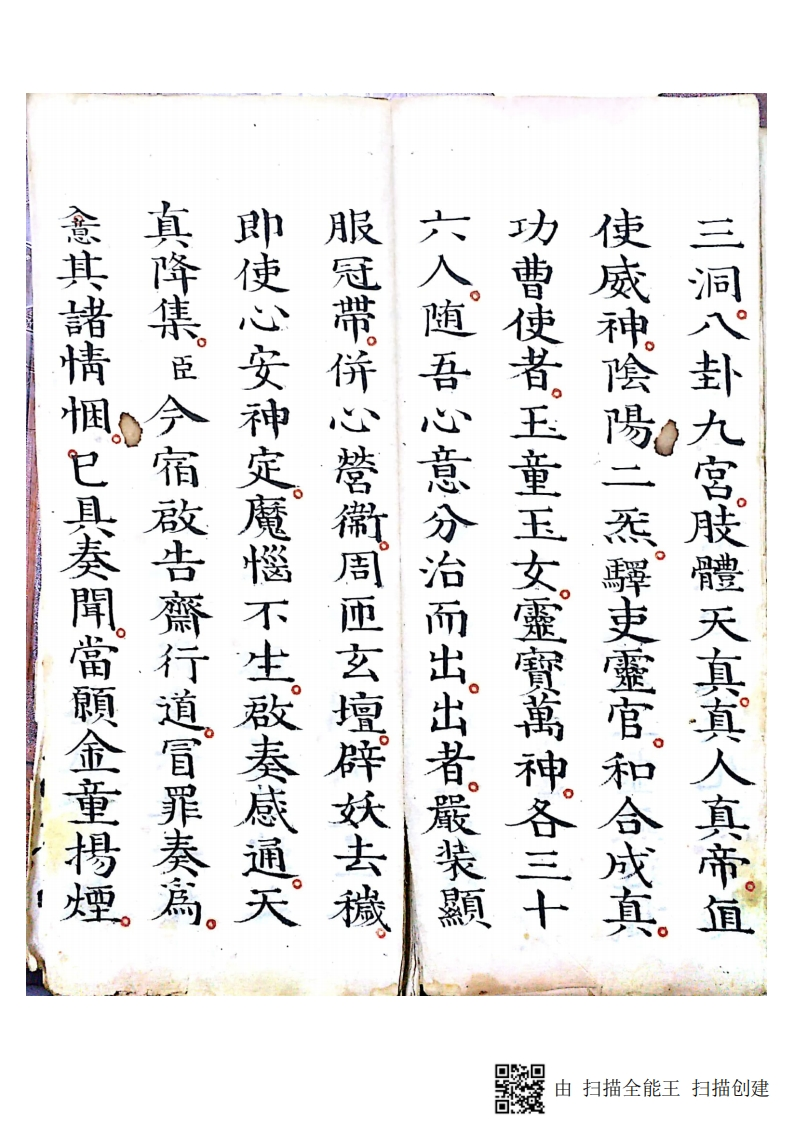 三洞。八卦九宮。肢體天真。真人真帝。直
使威神。陰陽二炁。驛吏靈官。和合成真。
功曹使者。玉童玉女。靈寶萬神。各三十
六人。随吾心意分治而出。出者。嚴装顯
服冠帶。併心營衛。周匝玄壇。辟妖去穢。
即使心安神定。魔惱不生。啟奏感通。天
真降集。臣今宿啟告齋行道。冒罪奏為。
入意其諸情悃。已具奏聞。當願金童揚煙。
由 扫描全能王 扫描创建